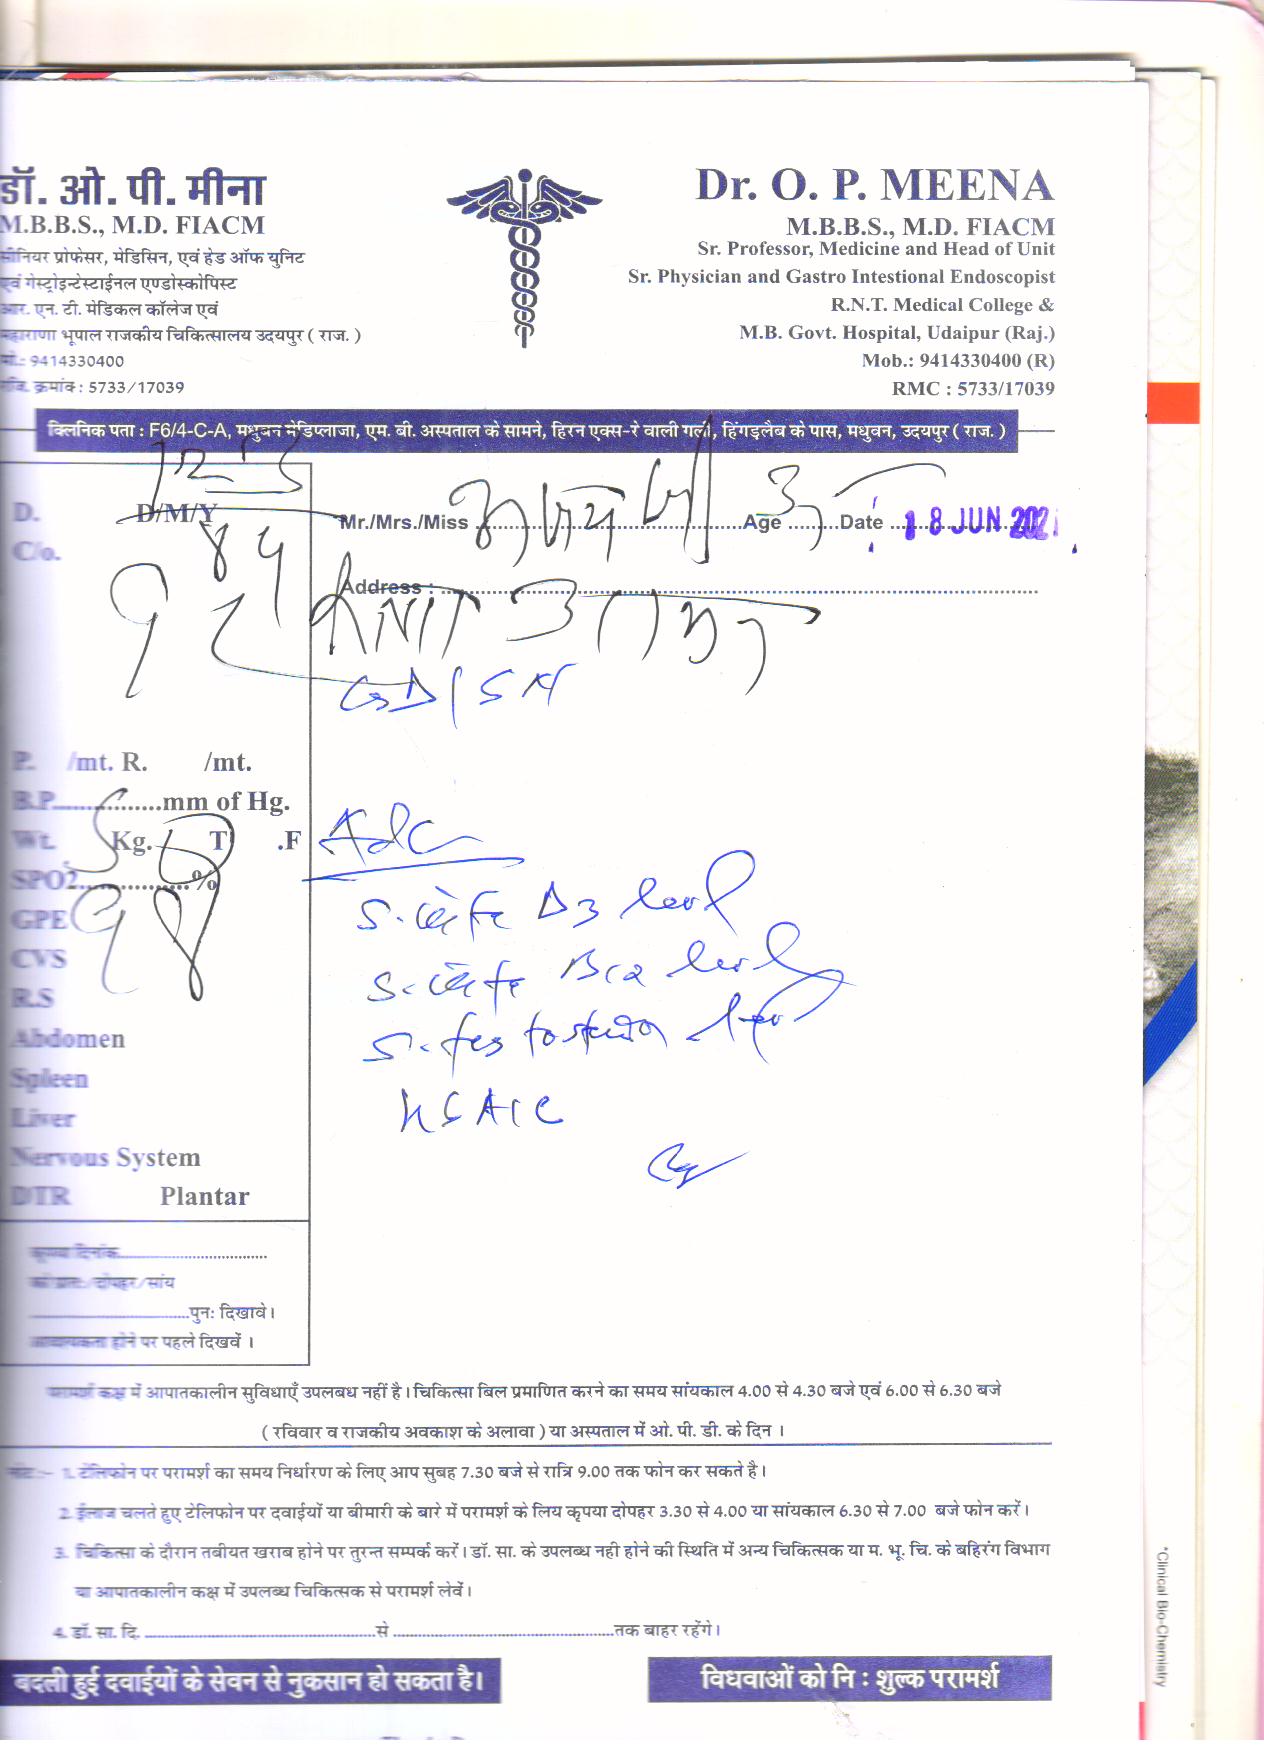 डॉ. ओ. पी. मीना
M.B.B.S., M.D. FIACM
सीनियर प्रोफेसर, मेडिसिन, एवं हेड ऑफ युनिट
एवं गेस्ट्रोइन्टेस्टाईनल एण्डोस्कोपिस्ट
आर. एन. टी. मेडिकल कॉलेज एवं
महाराणा भूपाल राजकीय चिकित्सालय उदयपुर ( राज. )
मो.: 9414330400
रजि. क्रमांक : 5733/17039
Dr. O. P. MEENA
M.B.B.S., M.D. FIACM
Sr. Professor, Medicine and Head of Unit
Sr. Physician and Gastro Intestional Endoscopist
R.N.T. Medical College &
M.B. Govt. Hospital, Udaipur (Raj.)
Mob.: 9414330400 (R)
RMC : 5733/17039
क्लिनिक पता : F6/4-C-A, मधुबन मेडिप्लाजा, एम. बी. अस्पताल के सामने, हिरन एक्स-रे वाली गली, हिंगड़लैब के पास, मधुवन, उदयपुर ( राज. )
D. D/M/Y
C/o.
Mr./Mrs./Miss Age Date 18 JUN 202
Address :
P. /mt. R. /mt.
B.P. mm of Hg.
Wt. Kg. T .F
SPO2 %
98
GPE
CVS
R.S
Abdomen
Spleen
Liver
Nervous System
DTR Plantar
Adv
S. D3 level
S. B12 level
S. testosteron level
HbA1C
कृपया दिनांक
को प्रातः/दोपहर/सांय
पुनः दिखावे।
आवश्यकता होने पर पहले दिखवें ।
परामर्श कक्ष में आपातकालीन सुविधाएँ उपलबध नहीं है। चिकित्सा बिल प्रमाणित करने का समय सांयकाल 4.00 से 4.30 बजे एवं 6.00 से 6.30 बजे
( रविवार व राजकीय अवकाश के अलावा ) या अस्पताल में ओ. पी. डी. के दिन ।
नोट :- 1. टेलिफोन पर परामर्श का समय निर्धारण के लिए आप सुबह 7.30 बजे से रात्रि 9.00 तक फोन कर सकते है।
2. ईलाज चलते हुए टेलिफोन पर दवाईयों या बीमारी के बारे में परामर्श के लिय कृपया दोपहर 3.30 से 4.00 या सांयकाल 6.30 से 7.00 बजे फोन करें।
3. चिकित्सा के दौरान तबीयत खराब होने पर तुरन्त सम्पर्क करें। डॉ. सा. के उपलब्ध नही होने की स्थिति में अन्य चिकित्सक या म. भू. चि. के बहिरंग विभाग
या आपातकालीन कक्ष में उपलब्ध चिकित्सक से परामर्श लेवें।
4. डॉ. सा. दि. से तक बाहर रहेंगे।
बदली हुई दवाईयों के सेवन से नुकसान हो सकता है।
विधवाओं को नि : शुल्क परामर्श
*Clinical Bio-Chemistry